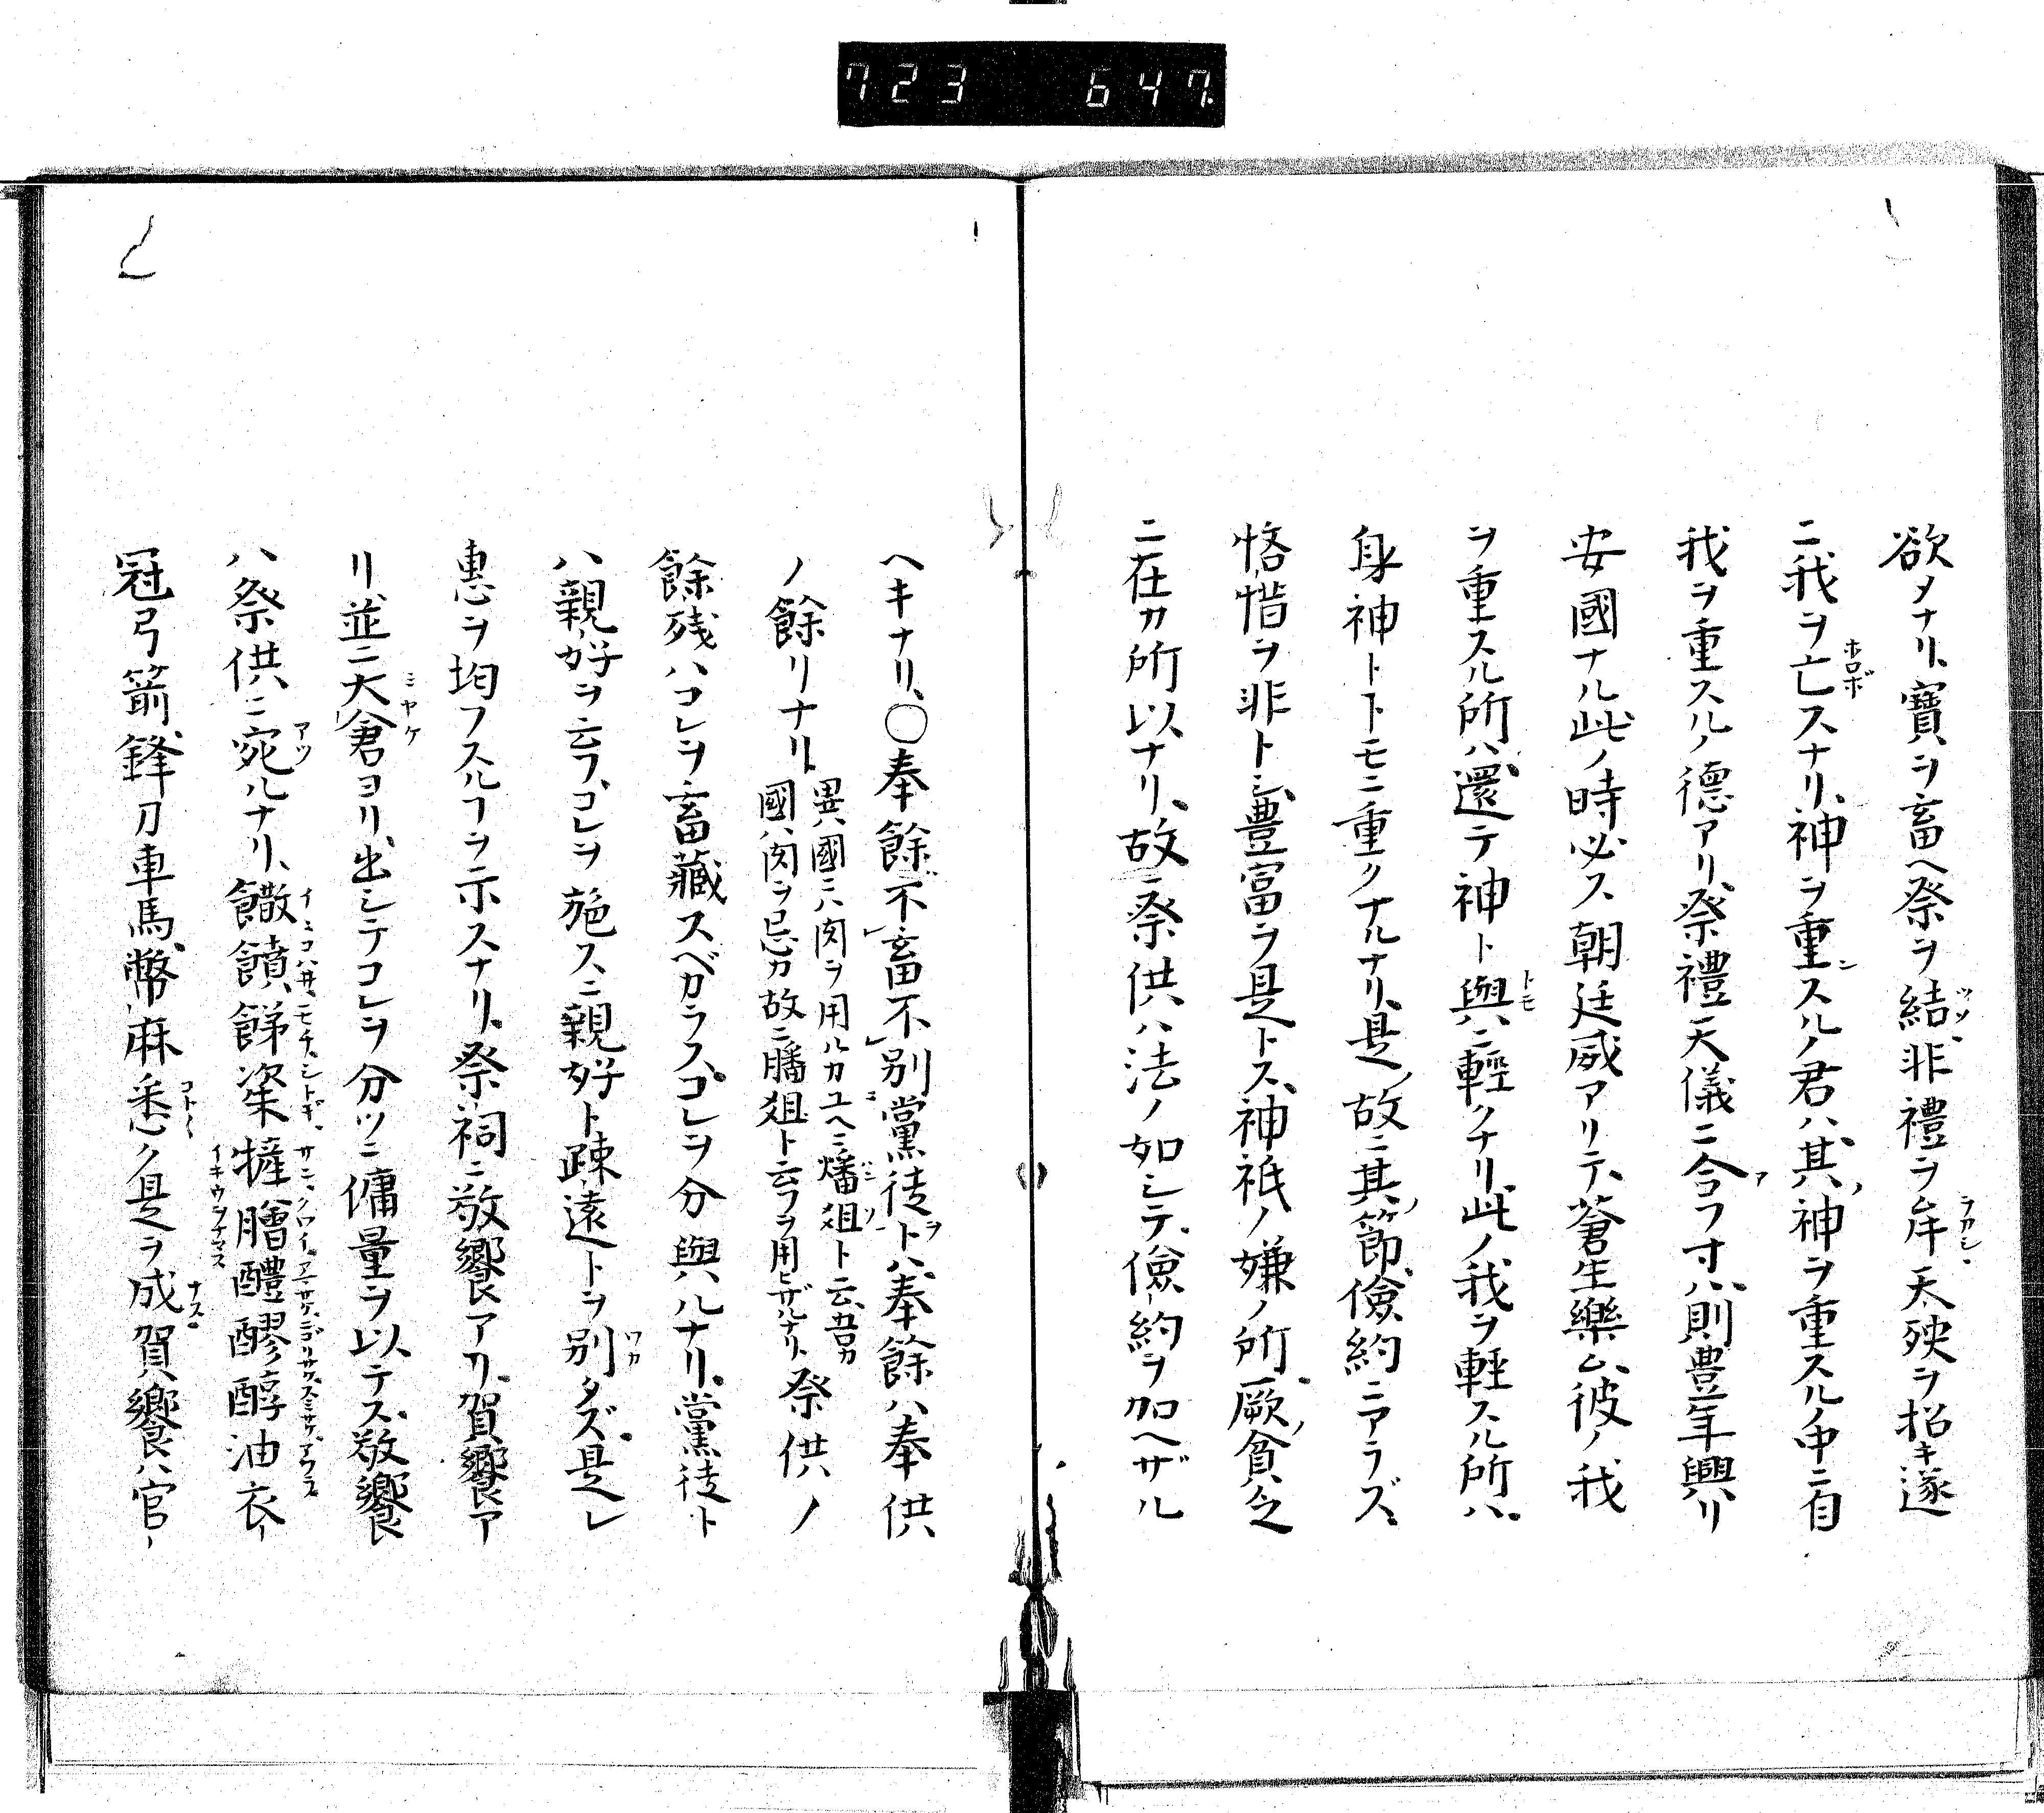 723 647
欲タナリ、寳ヲ畜ヘ祭ヲ結、非禮ヲ牟、天殃ヲ招キ遂
ニ我ヲ亡スナリ、神ヲ重スルノ君ハ、其ノ神ヲ重スルノ中ニ自
我ヲ重スルノ德アリ、祭禮天儀ニ合フ寸ハ、則豊年興リ
安國ナル、此ノ時必ス朝廷威アリテ、蒼生樂ム、彼ノ我
ヲ重スル所ハ、還テ神ト與ニ輕クナリ、此ノ我ヲ軽スル所ハ、
身神トトモニ重クナルナリ、是ノ故ニ其ノ節儉約ニアラズ、
悋惜ヲ非トシ、豊富ヲ是トス、神祇ノ嫌ノ所、厥ノ貧乏
ニ在カ所以ナリ、故ニ祭供ハ法ノ如シテ、儉約ヲ加ヘザル
ヘキナリ、〇奉餘不畜不別黨徒トハ、奉餘ハ奉供
ノ餘リナリ、異國ニハ肉ヲ用ルカユヘニ燔俎ト云、吾カ
國ハ肉ヲ忌カ故ニ膰俎ト云フヲ用ヒザルナリ、祭供ノ
餘残ハコレヲ畜藏スベカラス、コレヲ分與ハルナリ、黨徒ト
ハ親好ヲ云フ、コレヲ施スニ親好ト疎遠トヲ別タズ、是レ
惠ヲ均フスルフヲ示スナリ、祭祠ニ敬饗アリ、賀饗ア
リ、並ニ大倉ヨリ、出シテコレヲ分ツニ傭量ヲ以テス、敬饗
ハ祭供ニ宛ルナリ、饊饙餙粢 膾醴醪醇油衣
冠弓箭鋒刀車馬幣麻悉ク是ヲ成、賀饗ハ官